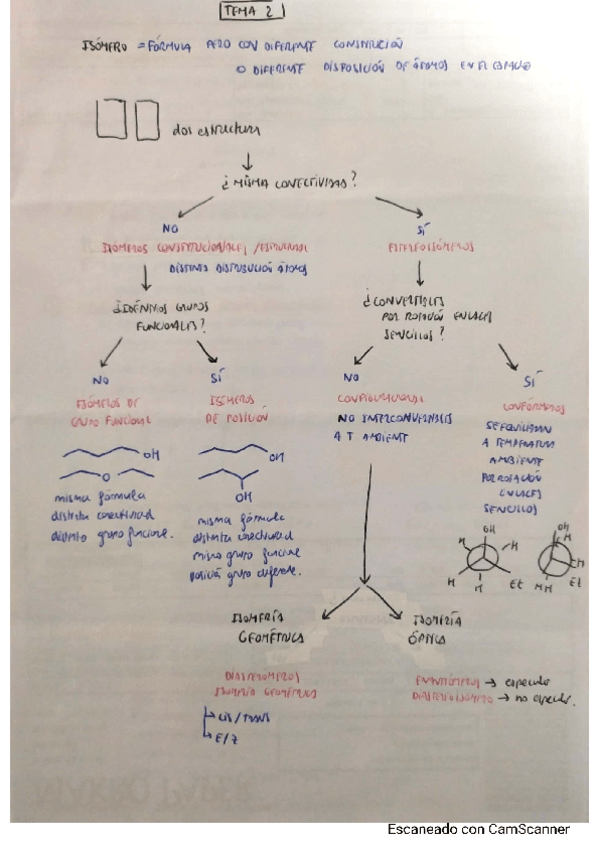 TEMA 2
ISÓMERO = FÓRMULA PERO CON DIFERENTE CONSTITUCIÓN
O DIFERENTE DISPOSICIÓN DE ÁTOMOS EN EL ESPACIO
dos estructura
¿MISMA CONECTIVIDAD?
NO
SÍ
ISÓMEROS CONSTITUCIONALES /
ESTEREOISÓMEROS
DISTINTA DISPOSICIÓN ÁTOMOS
¿IDÉNTICOS GRUPOS
FUNCIONALES?
¿CONVERTIBLES
POR ROTACIÓN ENLACES
SENCILLOS?
NO
SÍ
NO
SÍ
ISÓMEROS DE
GRUPO FUNCIONAL
ISÓMEROS
DE POSICIÓN
CONFIGURACIONAL
NO INTERCONVERTIBLES
A T AMBIENTE
CONFÓRMEROS
SE EQUILIBRAN
A TEMPERATURA
AMBIENTE
POR ROTACIÓN
ENLACES
SENCILLOS
OH
O
OH
OH
misma fórmula
distinta conectividad
distinto grupo funcione.
misma fórmula
distinta conectividad
mismo grupo funcione
posición grupo diferente.
OH
H
H
H
H
Et
OH
H
H
HH
Et
ISOMERÍA
GEOMÉTRICA
ISOMERÍA
ÓPTICA
ISOMERÍA GEOMÉTRICA
CIS/TRANS
E/Z
ENANTIÓMEROS → especular
DIASTEREOISÓMERO → no especular.
Escaneado con CamScanner